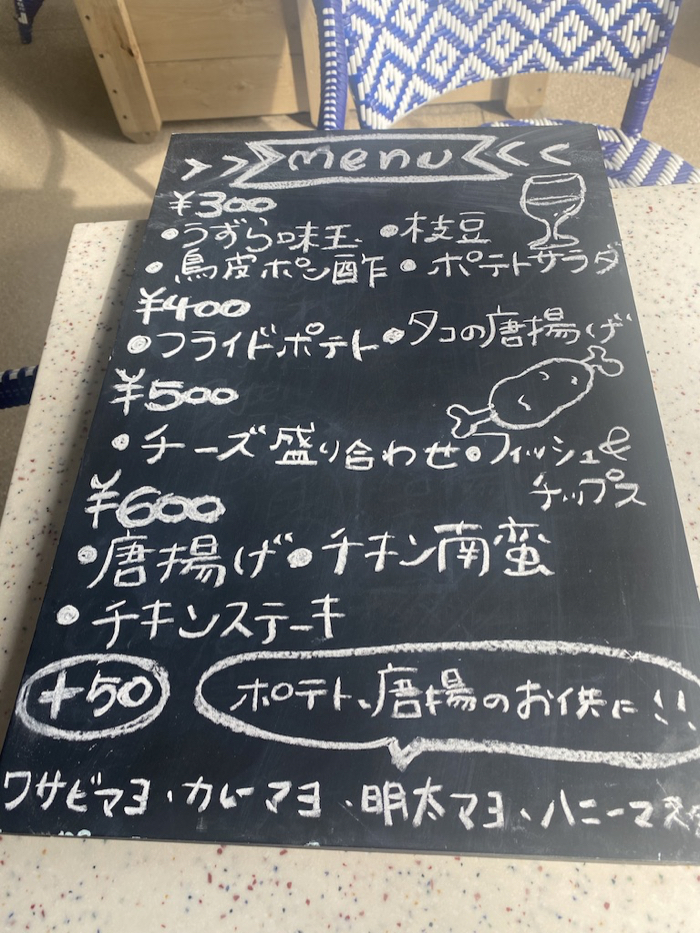 >> menu <<
¥300
•うずら味玉 •枝豆
•鳥皮ポン酢 •ポテトサラダ
¥400
•フライドポテト •タコの唐揚げ
¥500
•チーズ盛り合わせ •フィッシュ&
チップス
¥600
•唐揚げ •チキン南蛮
•チキンステーキ
+50 ポテト、唐揚のお供に!!
ワサビマヨ、カレーマヨ、明太マヨ、ハニーマスタ